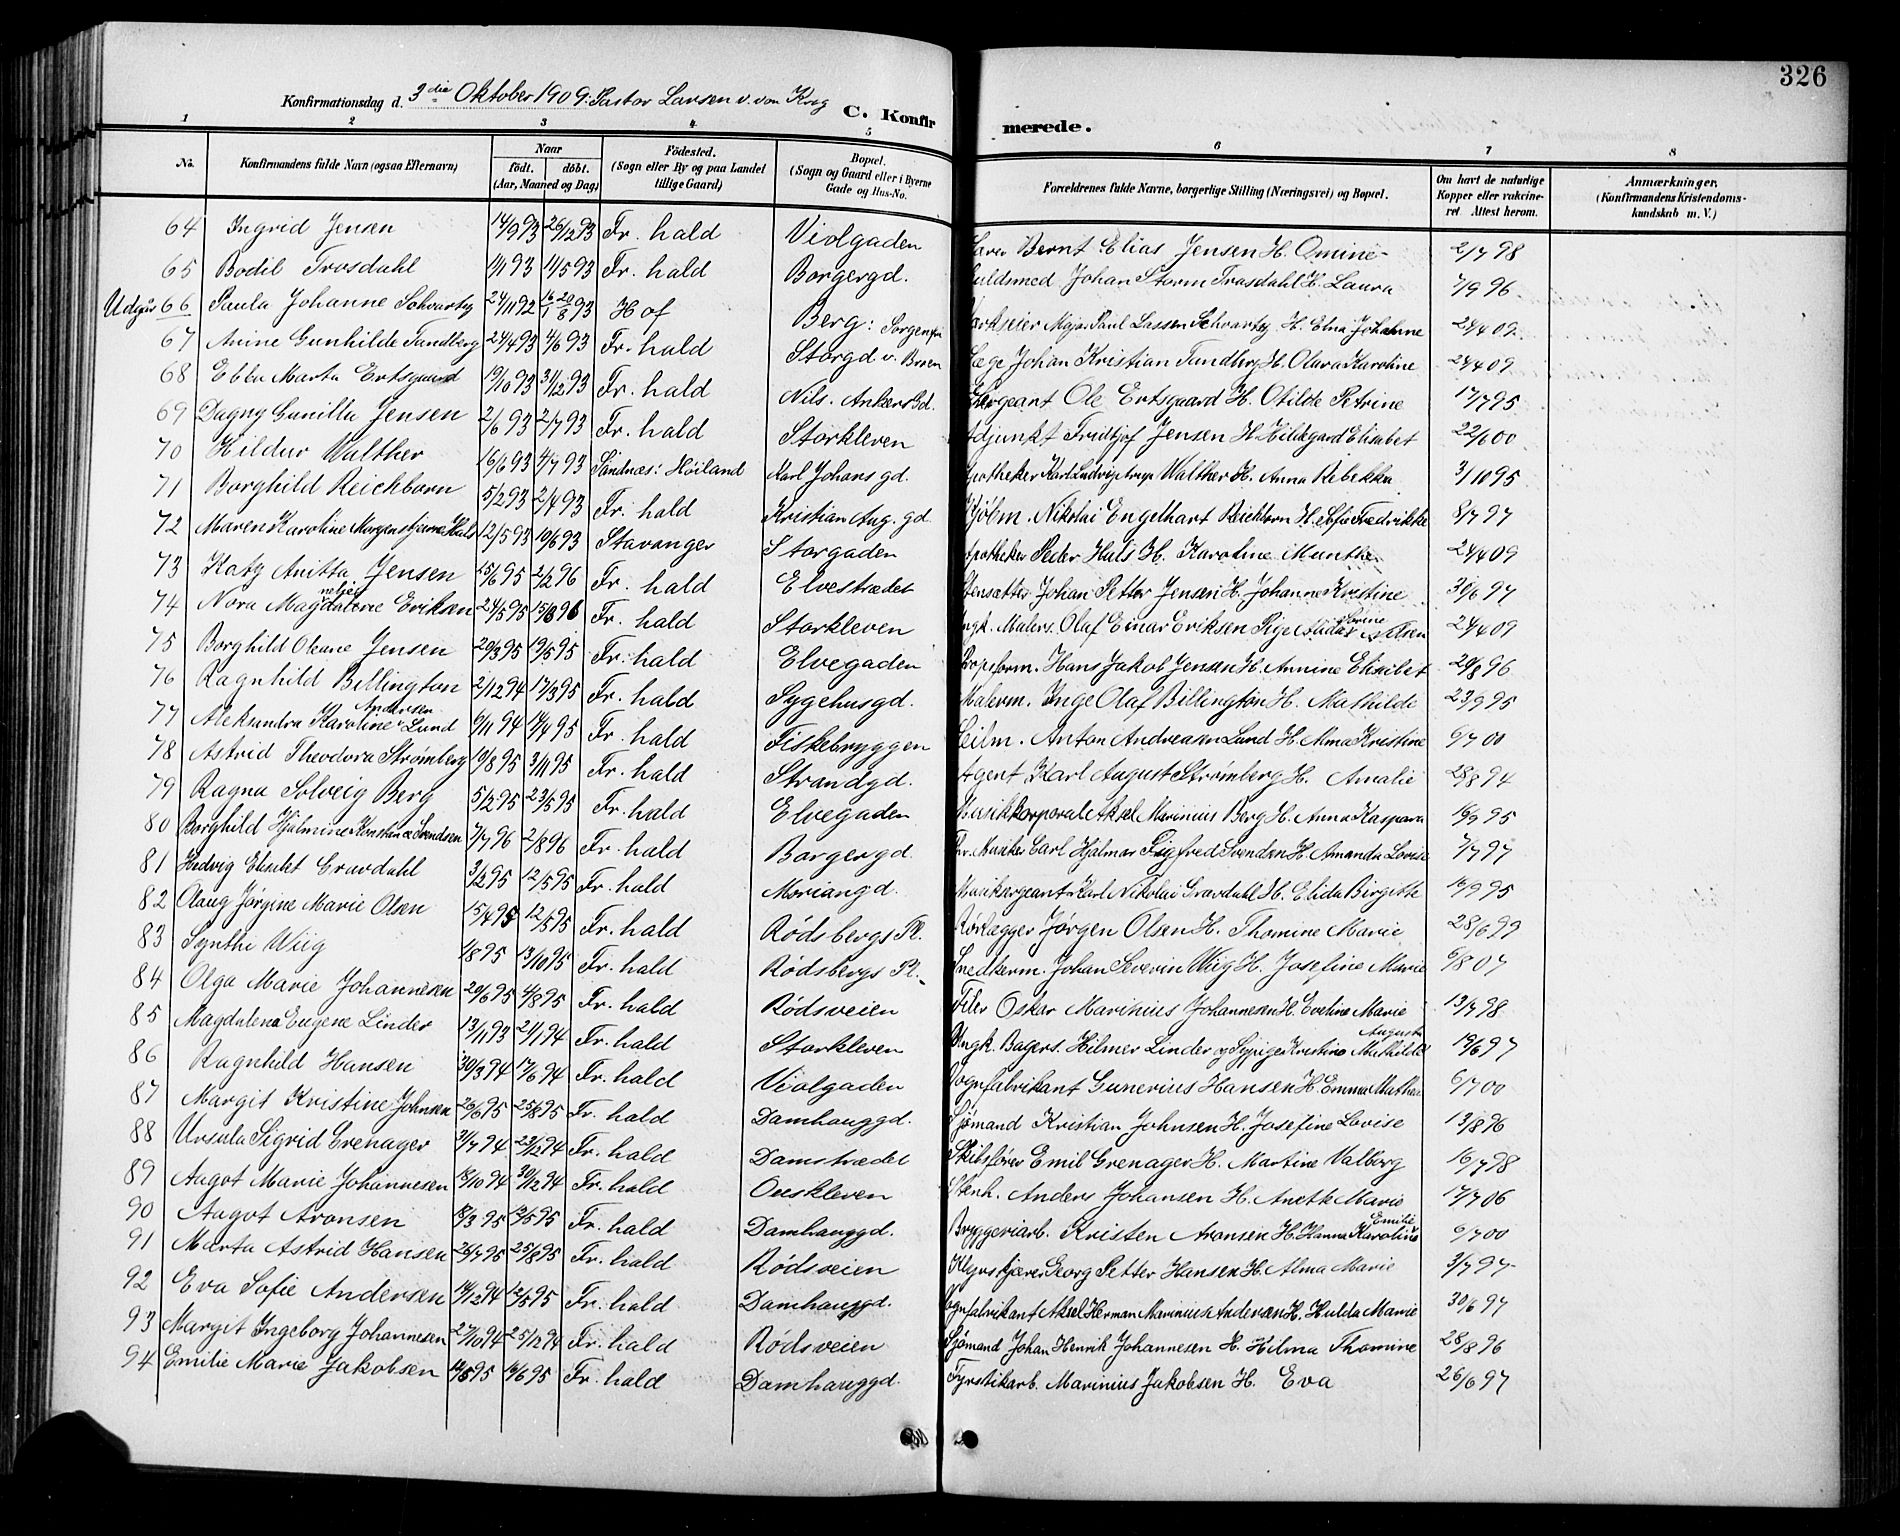 326
Konfirmationsdag d. 3die Oktober 1909: Pastor Larsen v. von Krog
C. Konfirmerede.
1 2 3 4 5 6 7 8
No. Konfirmandens fulde Navn (ogsaa Efternavn) Naar født. døbt. (Aar, Maaned og Dag) Fødested. (Sogn eller By og paa Landet tillige Gaard) Bopæl. (Sogn og Gaard eller i Byerne Gade og Hus-No. Forældrenes fulde Navne, borgerlige Stilling (Næringsvei) og Bopæl. Om havt de naturlige Kopper eller vakcineret Attest herom. Anmærkninger. (Konfirmandens Kristendomskundskab m. V.)
64 Ingrid Jensen 14/9 93 26/12 93 Fr. hald Violgaden Bernt Elias Jensen H. Omine 2/7 98
65 Bodil Trosdahl 11/1 93 11/5 93 Fr. hald Borgergd. Guldsmed Johan Storm Trosdahl H. Laura 7/9 96
Udgår 66 Paula Johanne Schvartz 24/11 92 Hof Berg: Sorgenfri Major Paul Lassen Schvartz H. Elna Johanne 24/4 09
67 Anine Gunhilde Tandberg 24/4 93 4/6 93 Fr. hald Storgd v. Broen Læge Johan Kristian Tandberg H. Olava Karoline 24/4 09
68 Ebba Marta Ertsgaard 19/10 93 31/12 93 Fr. hald Nils. Ankers Gd. Sergeant Ole Ertsgaard H. Otilde Petrine 17/7 95
69 Dagny Gunilla Jensen 2/6 93 2/7 93 Fr. hald Storkleven Adjunkt Fridtjof Jensen H. Hildegard Elisabet 22/6 00
70 Hildur Walther 16/6 93 4/7 93 Sandnæs: Høiland Karl Johans gd. Apotheker Karl Ludvig Walther H. Anna Rebekka 3/10 95
71 Borghild Reichborn 5/2 93 2/4 93 Fr. hald Kristian Aug. gd. Kjøbm. Nikolai Engelhart Reichborn H. Sofie Fredrikke 8/7 97
72 Maren Karoline Morgenstjerne Hals 12/5 93 10/6 93 Stavanger Storgaden Apotheker Peder Hals H. Karoline Munthe 24/4 09
73 Katy Anitta Jensen 25/6 95 2/2 96 Fr. hald Elvestrædet Stensætter Johan Petter Jensen H. Johanne Kristine 30/6 97
74 Nora Magdalene Eriksen 24/5 95 15/3 96 Fr. hald Storkleven Ungk. Malers. Olaf Einar Eriksen Pige Alida Sorine Nilsen 24/4 09
75 Borghild Oleane Jensen 20/3 95 19/5 95 Fr. hald Elvegaden Hans Jakob Jensen H. Annine Elisabet 20/8 96
76 Ragnhild Billington 2/12 94 17/3 95 Fr. hald Sygehusgd. Malerm. Inge Olaf Billington H. Mathilde 23/9 95
77 Aleksandra Karoline Andersen Lund 6/11 94 14/4 95 Fr. hald Fiskebryggen Seilm. Anton Andreasen Lund H. Alma Kristine 6/7 00
78 Astrid Theodora Strømberg 10/8 95 3/11 95 Fr. hald Strandgd. Agent Karl August Strømberg H. Amalie 28/8 94
79 Ragna Solveig Berg 5/2 95 23/5 95 Fr. hald Elvegaden Musikkorporal Aksel Marinius Berg H. Anna Kaspara 16/9 95
80 Borghild Hjalmine Konstance Svendsen 7/7 96 2/8 96 Fr. hald Borgergd Musiker Carl Hjalmar Sigfred Svendsen H. Amanda Lovise 7/7 97
81 Hedvig Elisabet Gravdahl 3/2 95 12/5 95 Fr. hald Moriangd. Musiksergeant Karl Nikolai Gravdahl H. Elida Birgitte 16/9 95
82 Olaug Jørgine Marie Olsen 15/4 95 12/5 95 Fr. hald Rødsbergs Pl. Rørlægger Jørgen Olsen H. Thomine Marie 28/6 99
83 Synthi Wiig 1/8 95 13/10 95 Fr. hald Rødsbergs Pl. Snedkerm. Johan Severin Wiig H. Josefine Marie 6/8 07
84 Olga Marie Johannesen 20/6 95 4/8 95 Fr. hald Rødsveien Filer Oskar Marinius Johannesen H. Eveline Marie 13/7 98
85 Magdalena Eugene Linder 13/11 93 21/1 94 Fr. hald Storkleven Ungk. Bagers. Hilmer Linder og Sypige Kristine Mathilde Augusta 19/6 97
86 Ragnhild Hansen 30/3 94 17/6 94 Fr. hald Violgaden Vognfabrikant Gunerius Hansen H. Emma Mathea 6/7 00
87 Margit Kristine Johnsen 26/6 95 25/8 95 Fr. hald Damhauggd. Sjømand Kristian Johnsen H. Josefine Lovise 13/8 96
88 Ursula Sigrid Grenager 31/7 94 23/12 94 Fr. hald Damstrædet Skibsfører Emil Grenager H. Martine Valborg 16/7 98
89 Aagot Marie Johannesen 18/10 94 30/12 94 Fr. hald Oreskleven Stenh. Anders Johansen H. Anette Marie 17/7 06
90 Aagot Aronsen 18/3 95 12/5 95 Fr. hald Damhauggd. Bryggeriarb. Kristen Aronsen H. Hanna Emilie Karoline 6/7 00
91 Marta Astrid Hansen 26/7 95 25/8 95 Fr. hald Rødsveien Georg Petter Hansen H. Alma Marie 3/7 97
92 Eva Sofie Andersen 14/12 94 12/5 95 Fr. hald Damhauggd. Vognfabrikant Aksel Herman Marinius Andersen H. Hulda Marie 30/6 97
93 Margit Ingeborg Johannesen 27/10 94 25/12 94 Fr. hald Rødsveien Sjømand Johan Henrik Johannesen H. Hilma Thomine 28/8 96
94 Emilie Marie Jakobsen 12/5 95 16/6 95 Fr. hald Damhauggd. Fyrstikarb. Marinius Jakobsen H. Eva 26/6 97